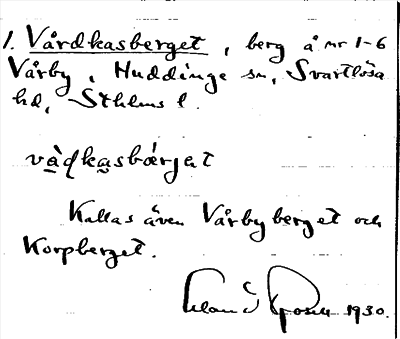 1. Vårdkasberget, berg å nr 1-6
Vårby, Huddinge sn, Svartlösa
hd, Sthlms l.
vàḍkasbǽrjat
Kallas även Vårbyberget och
Korpberget.
1930.